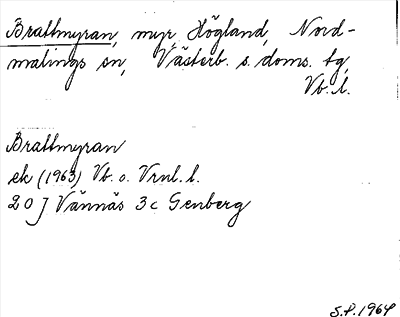 Brattmyran, myr, Högland, Nord-
malings sn, Västerb. s. doms. tg,
Vb. l.
Brattmyran
ek (1963) Vb. o. Vrnl. l.
20 J Vännäs 3 c Genberg
S.P. 1964